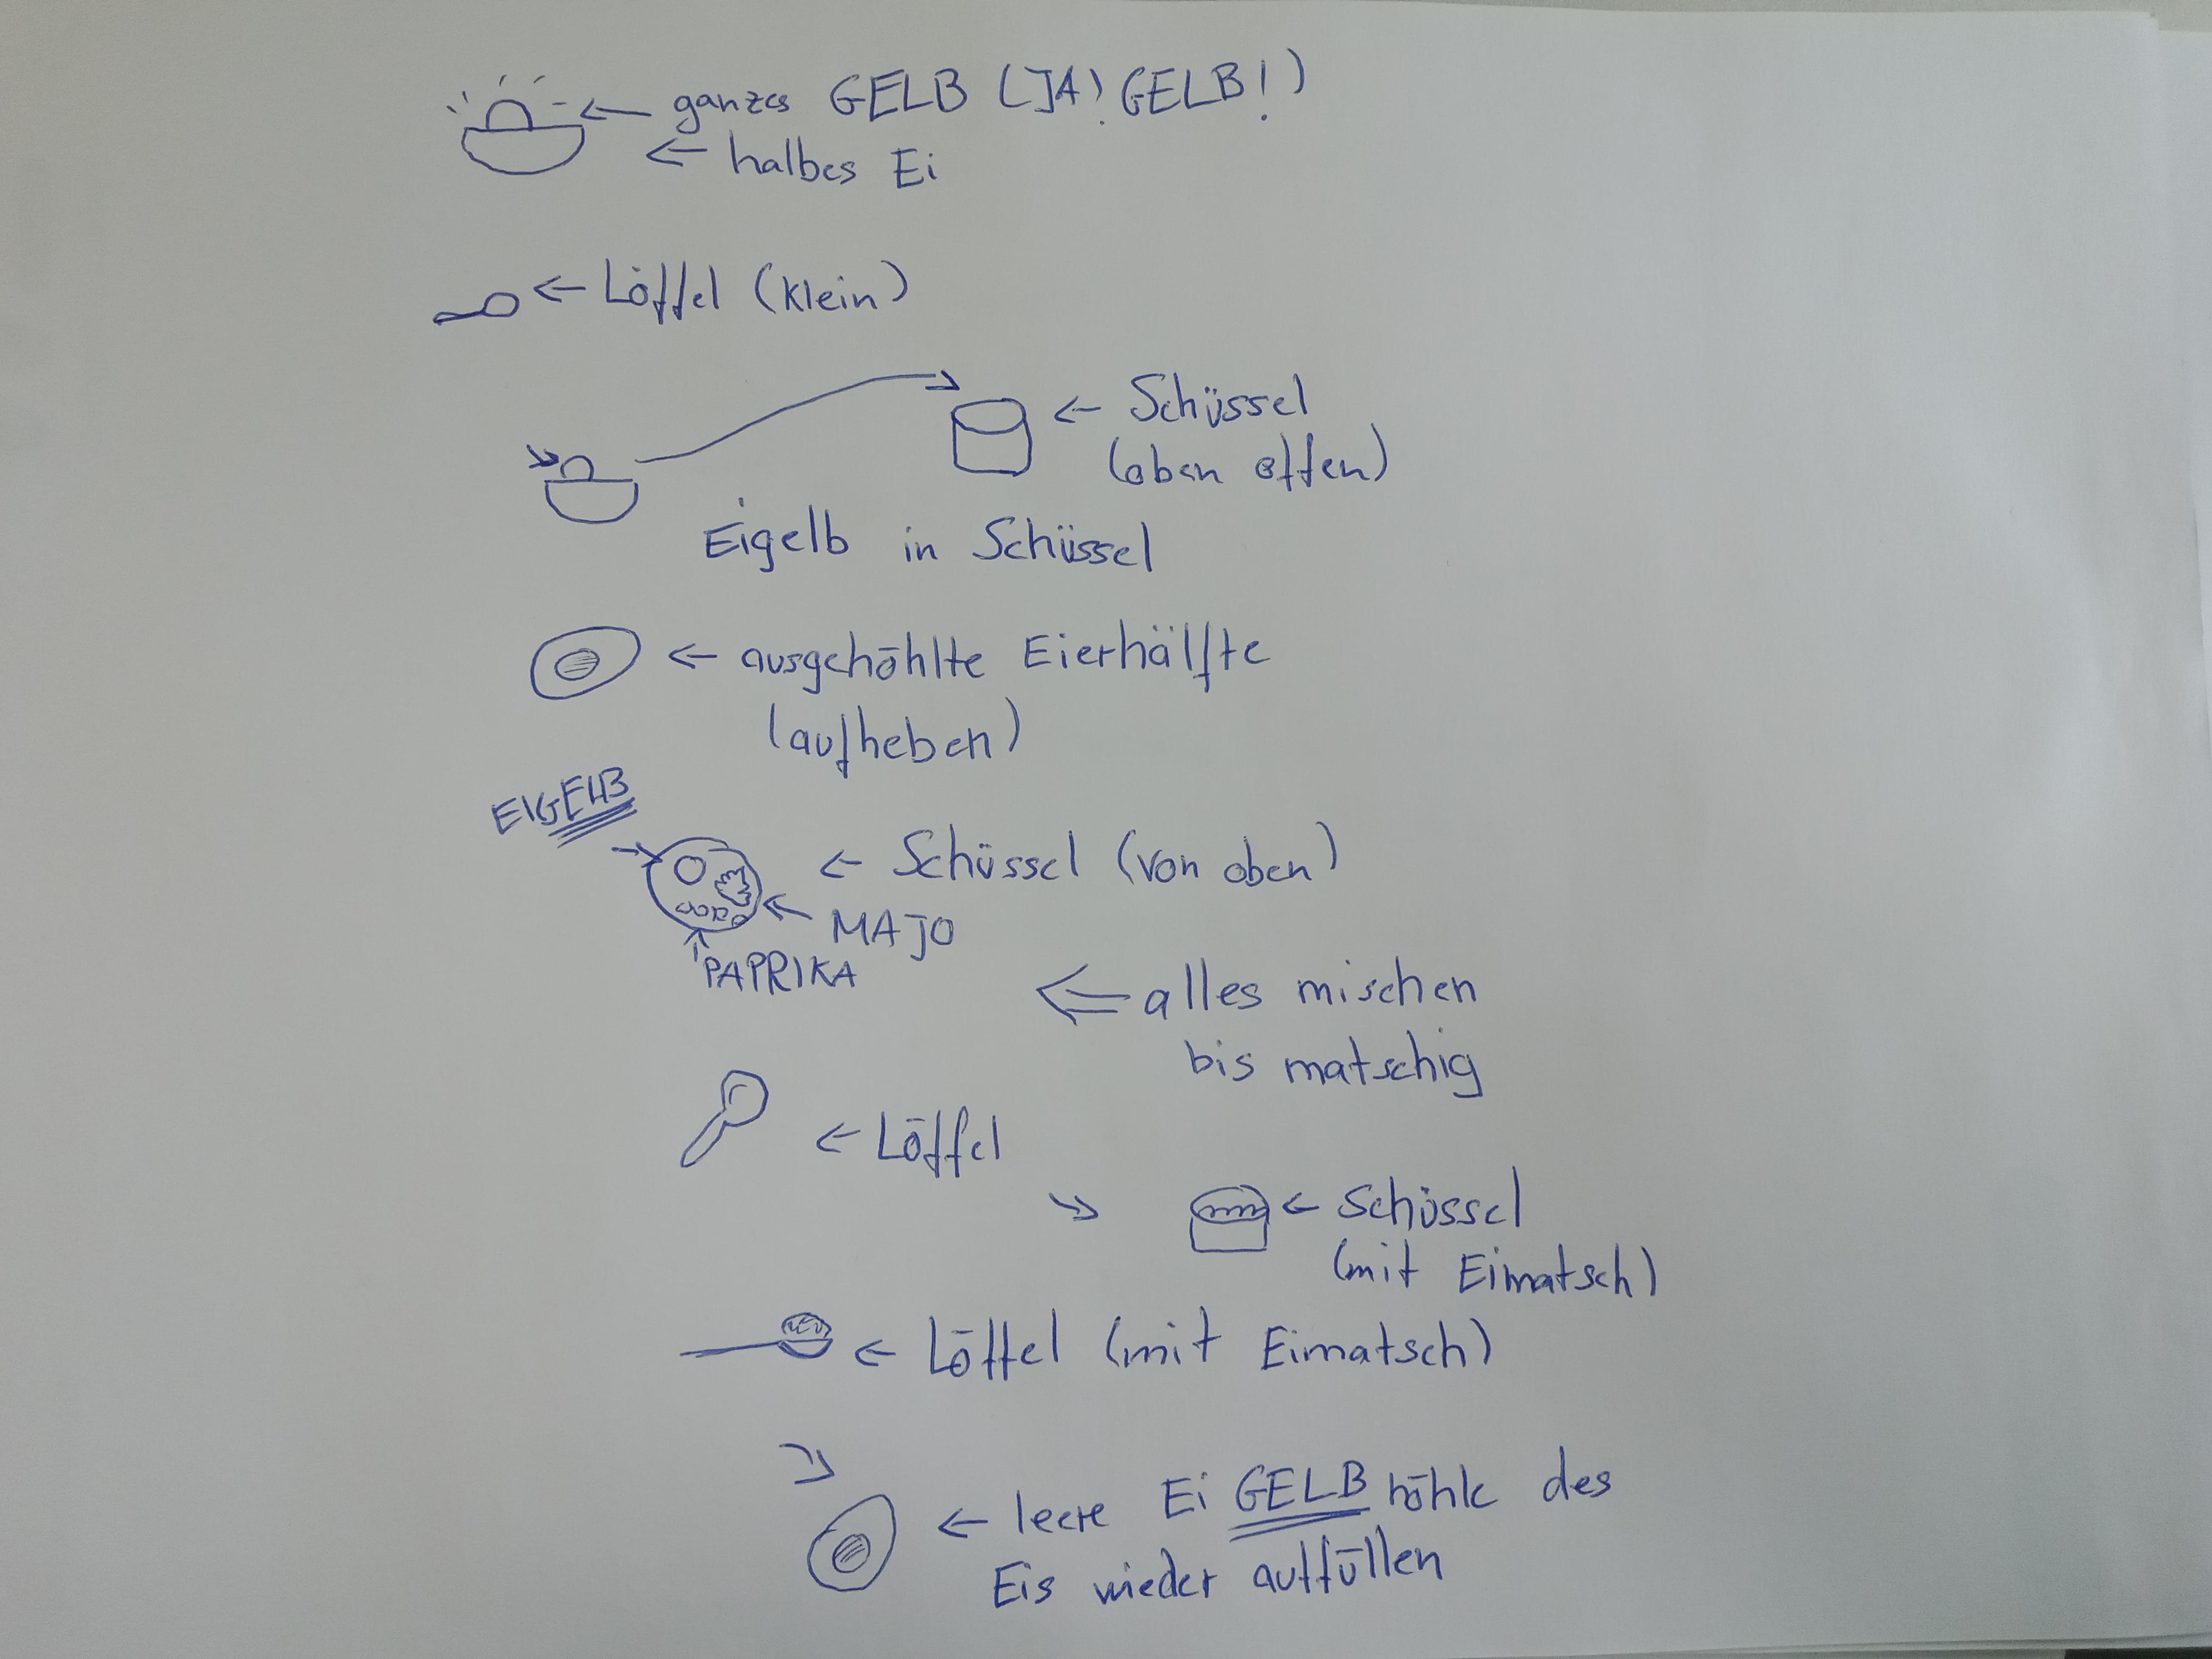 ganzes GELB (JA! GELB!)
halbes Ei
Löffel (klein)
Schüssel
(oben offen)
Eigelb in Schüssel
ausgehöhlte Eierhälfte
(aufheben)
EIGELB
Schüssel (von oben)
MAJO
PAPRIKA
alles mischen
bis matschig
Löffel
Schüssel
(mit Eimatsch)
Löffel (mit Eimatsch)
leere EiGELBhöhle des
Eis wieder auffüllen